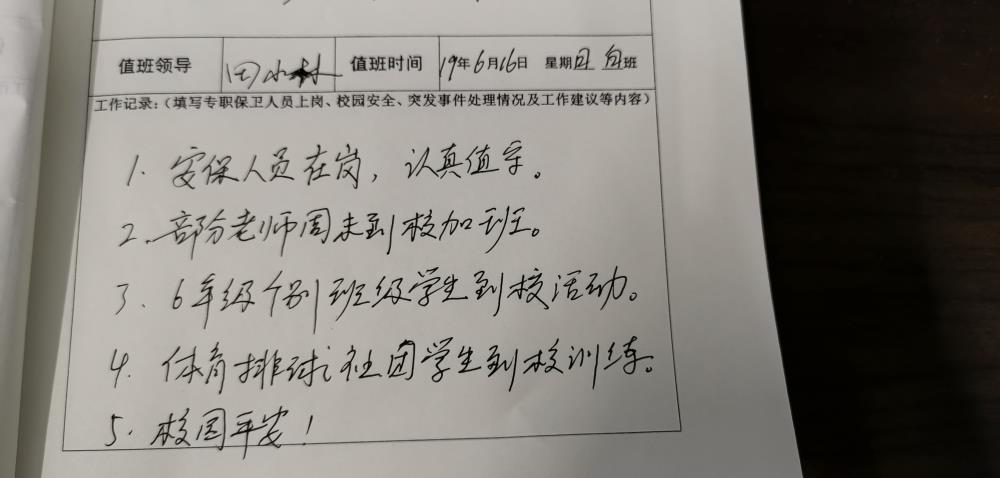 值班领导 田小林 值班时间 19年6月16日 星期日 白班
工作记录:(填写专职保卫人员上岗、校园安全、突发事件处理情况及工作建议等内容)
1. 安保人员在岗,认真值守。
2. 部分老师周末到校加班。
3. 6年级个别班级学生到校活动。
4. 体育排球社团学生到校训练。
5. 校园平安!